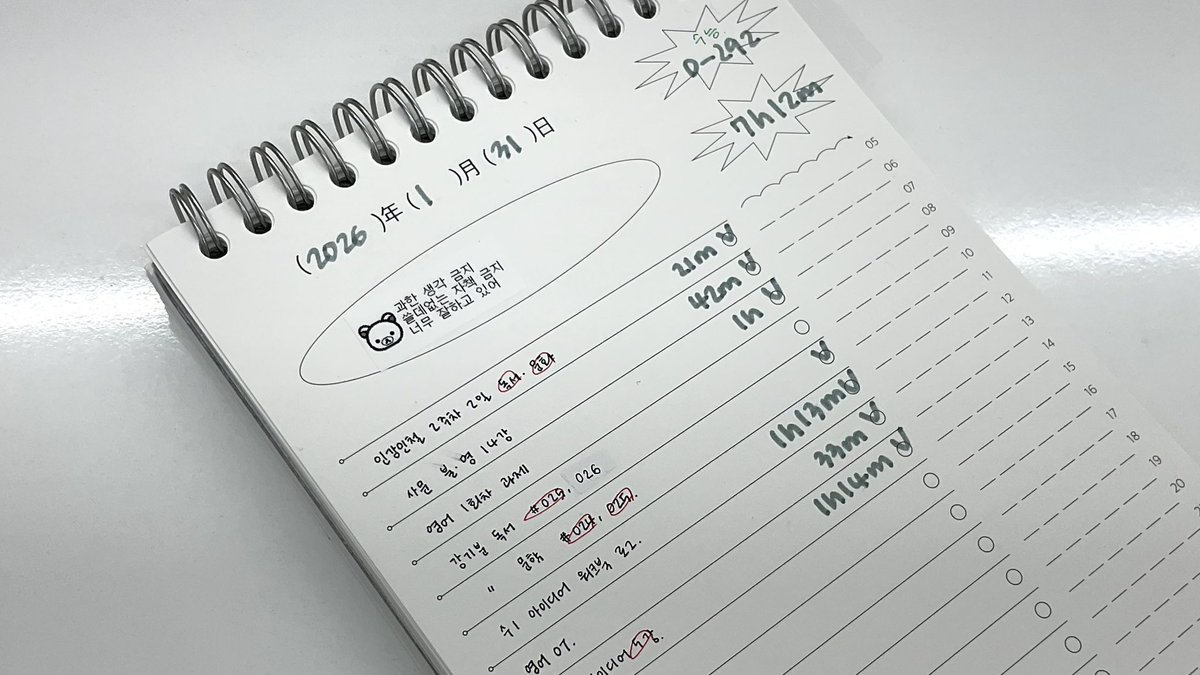 수능
D-292
7h12m
(2026)年(1)月(31)日
과한 생각 금지
쓸데없는 자책 금지
너무 잘하고 있어
인강민철 2주차 2일 독서. 문학 21m
사문 불·영 14강 42m
영어 1회차 과제 1h
강기분 독서 #025, 026
" 문학 #024, 025.
수1 아이디어 워크북 로그. 1h13m
영어 07. 33m
아이디어 1h14m
05
06
07
08
09
10
11
12
13
14
15
16
17
18
19
20